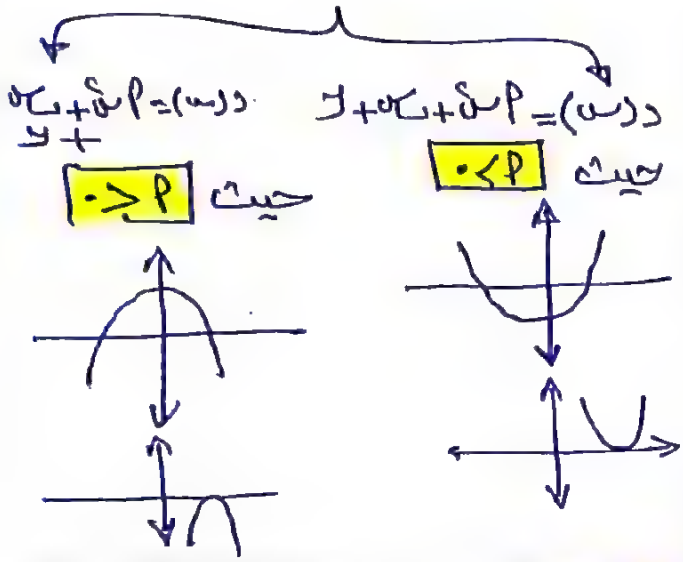 د(س) = أس² + ب س + جـ
حيث أ > ٠
د(س) = أس² + ب س
+ جـ
حيث أ < ٠